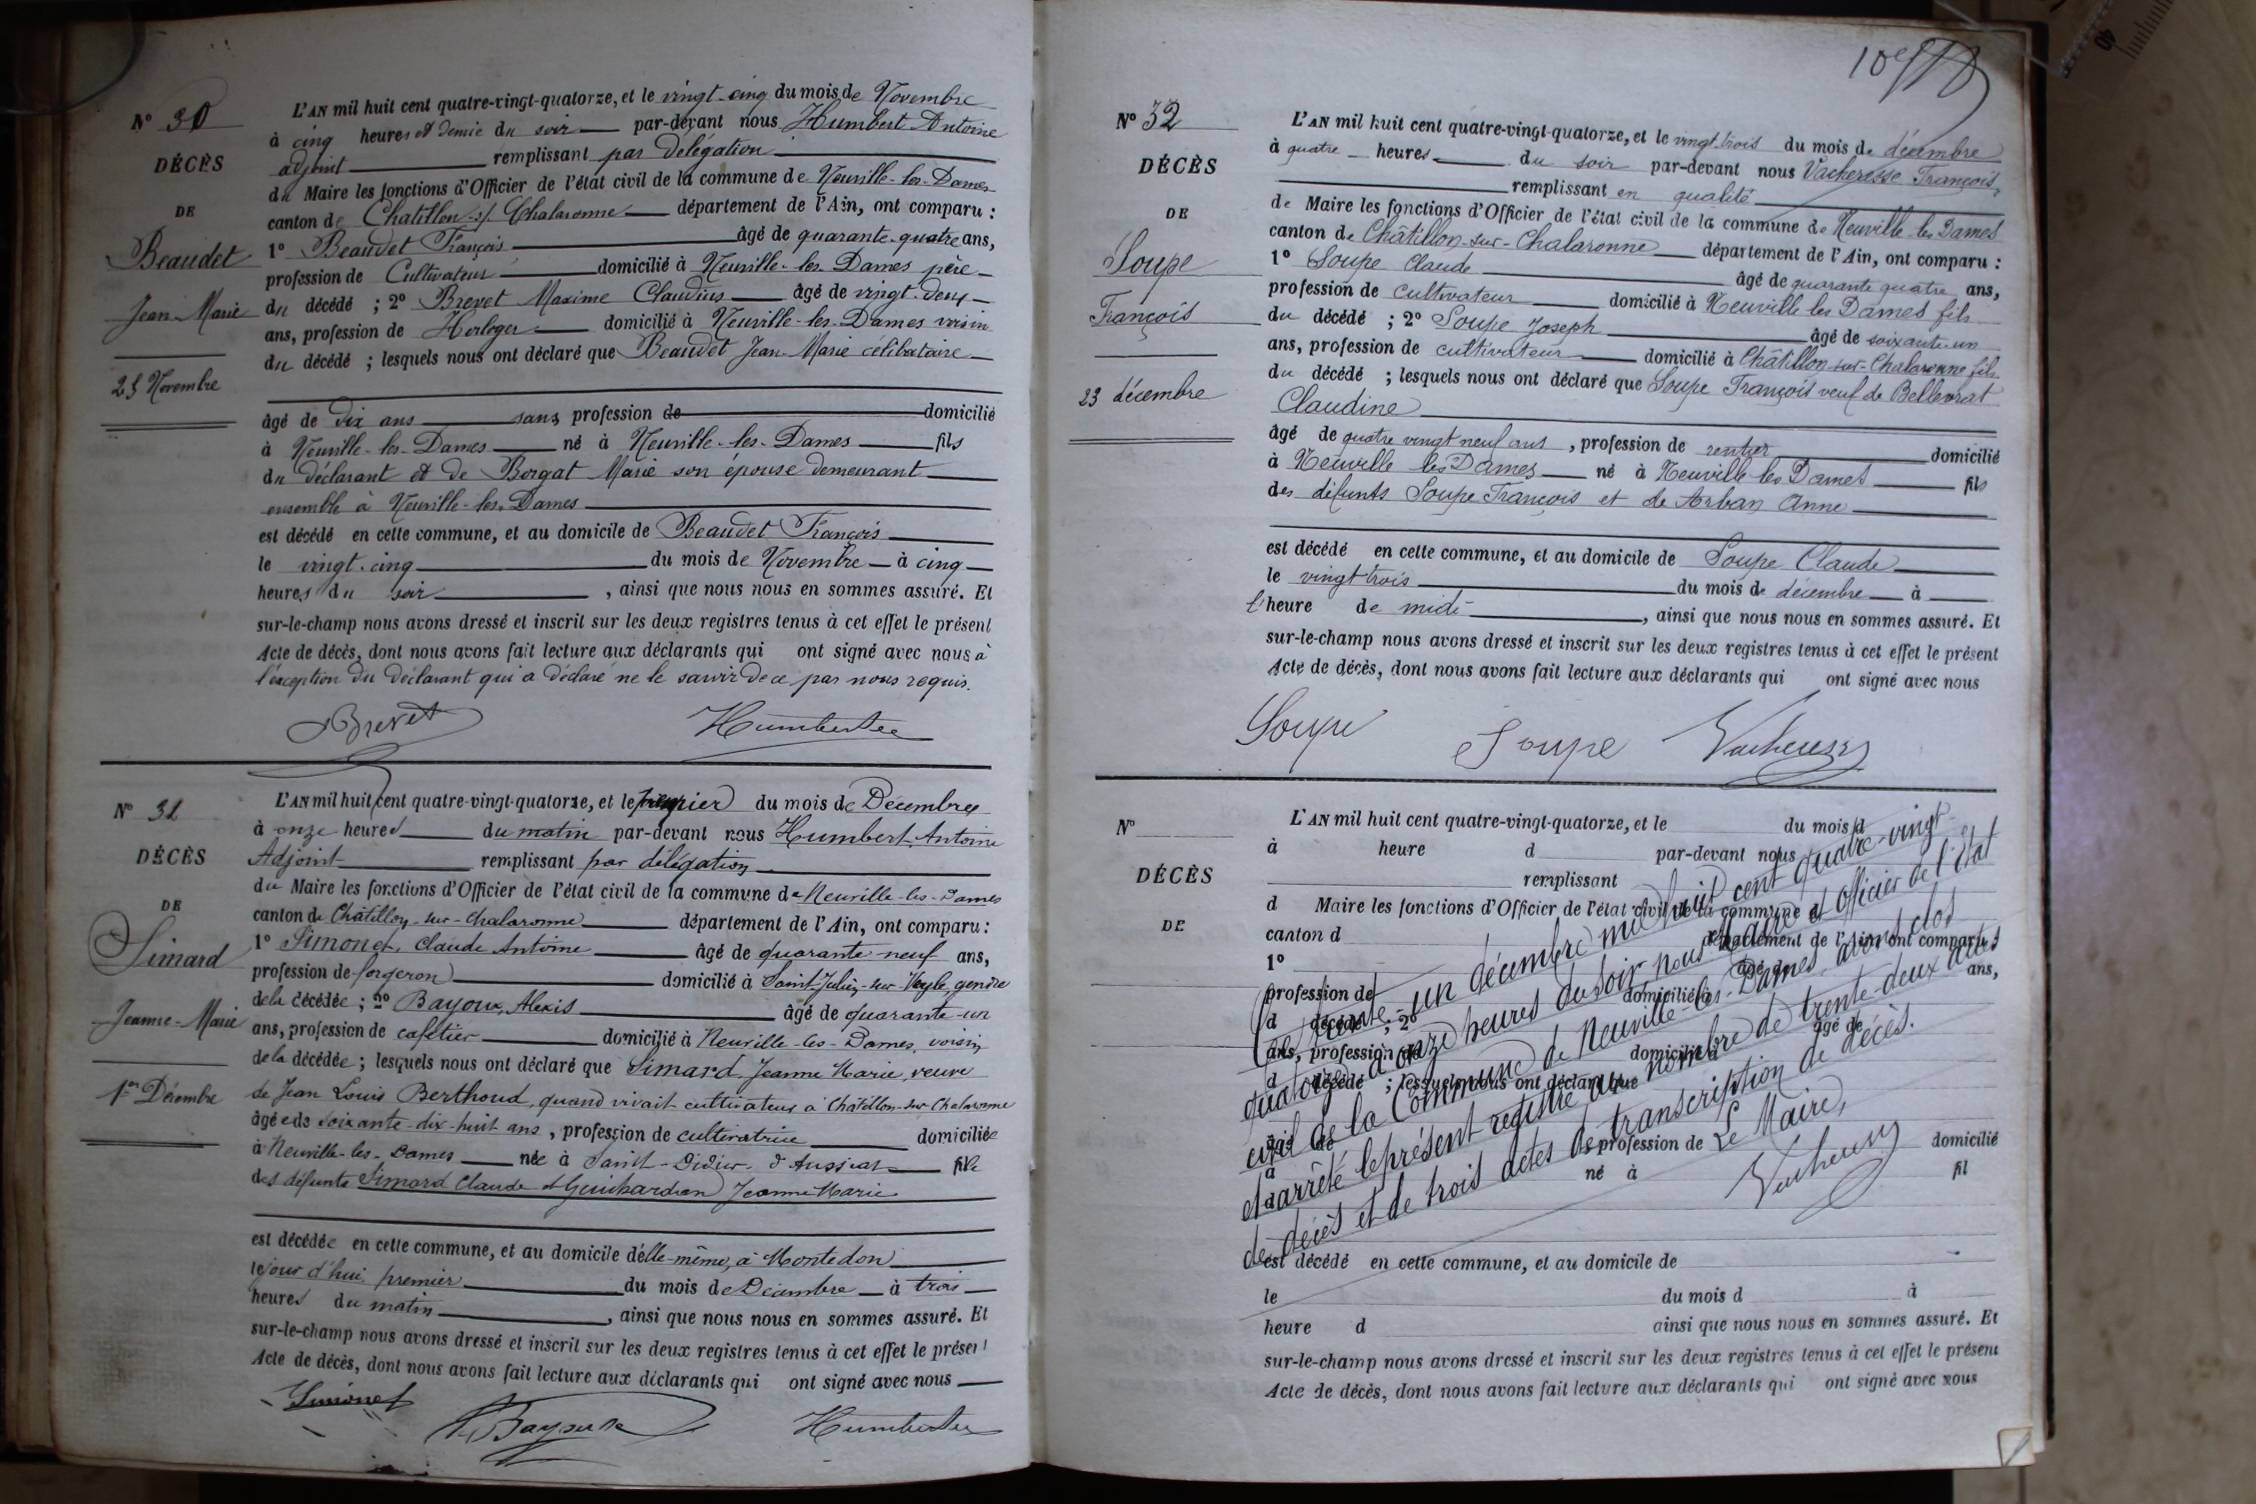 N° 30
DÉCÈS
DE
Beaudet
Jean-Marie
25 Novembre
L'AN mil huit cent quatre-vingt-quatorze, et le vingt-cinq du mois de Novembre
à cinq heures et demie du soir par-devant nous Humbert Antoine
adjoint remplissant par délégation
du Maire les fonctions d'Officier de l'état civil de la commune de Neuville-les-Dames
canton de Chatillon-s/-Chalaronne département de l'Ain, ont comparu :
1° Beaudet François âgé de quarante-quatre ans,
profession de Cultivateur domicilié à Neuville-les-Dames père
du décédé ; 2° Brevet Maxime Claudius âgé de vingt-deux
ans, profession de Horloger domicilié à Neuville-les-Dames voisin
du décédé ; lesquels nous ont déclaré que Beaudet Jean-Marie célibataire
âgé de dix ans sans profession de domicilié
à Neuville-les-Dames né à Neuville-les-Dames fils
du déclarant et de Borgat Marie son épouse demeurant
ensemble à Neuville-les-Dames
est décédé en cette commune, et au domicile de Beaudet François
le vingt-cinq du mois de Novembre à cinq
heures du soir , ainsi que nous nous en sommes assuré. Et
sur-le-champ nous avons dressé et inscrit sur les deux registres tenus à cet effet le présent
Acte de décès, dont nous avons fait lecture aux déclarants qui ont signé avec nous à
l'exception du déclarant qui a déclaré ne le savoir de ce par nous requis.
Brevet Humbert
N° 31
DÉCÈS
DE
Simard
Jeanne-Marie
1er Décembre
L'AN mil huit cent quatre-vingt-quatorze, et le premier du mois de Décembre
à onze heures du matin par-devant nous Humbert Antoine
Adjoint remplissant par délégation
du Maire les fonctions d'Officier de l'état civil de la commune de Neuville-les-Dames
canton de Châtillon-sur-Chalaronne département de l'Ain, ont comparu :
1° Simonet, Claude Antoine âgé de quarante-neuf ans,
profession de forgeron domicilié à Saint-Julien-sur-Veyle, gendre
de la décédée ; 2° Bayoux, Alexis âgé de quarante-un
ans, profession de cafetier domicilié à Neuville-les-Dames, voisin
de la décédée ; lesquels nous ont déclaré que Simard, Jeanne Marie, veuve
de Jean Louis Berthoud, quand vivait cultivateur à Châtillon-sur-Chalaronne
âgée de soixante-dix-huit ans , profession de cultivatrice domiciliée
à Neuville-les-Dames née à Saint-Didier-d'Aussiat fille
des défunts Simard Claude et Guichardon Jeanne Marie
est décédée en cette commune, et au domicile d'elle-même, à Montedon
le jour d'hui premier du mois de Décembre à trois
heures du matin , ainsi que nous nous en sommes assuré. Et
sur-le-champ nous avons dressé et inscrit sur les deux registres tenus à cet effet le présent
Acte de décès, dont nous avons fait lecture aux déclarants qui ont signé avec nous
Simonet Bayoux Humbert
N° 32
DÉCÈS
DE
Soupe
François
23 décembre
L'AN mil huit cent quatre-vingt-quatorze, et le vingt-trois du mois de décembre
à quatre heures du soir par-devant nous Vacheresse François,
remplissant en qualité
de Maire les fonctions d'Officier de l'état civil de la commune de Neuville-les-Dames
canton de Châtillon-sur-Chalaronne département de l'Ain, ont comparu :
1° Soupe Claude âgé de quarante quatre ans,
profession de cultivateur domicilié à Neuville les Dames fils
du décédé ; 2° Soupe Joseph âgé de soixante-un
ans, profession de cultivateur domicilié à Châtillon-sur-Chalaronne fils
du décédé ; lesquels nous ont déclaré que Soupe François veuf de Bellevrat
Claudine
âgé de quatre vingt neuf ans , profession de rentier domicilié
à Neuville les Dames né à Neuville-les Dames fils
des défunts Soupe François et de Arban Anne
est décédé en cette commune, et au domicile de Soupe Claude
le vingt trois du mois de décembre à
l'heure de midi , ainsi que nous nous en sommes assuré. Et
sur-le-champ nous avons dressé et inscrit sur les deux registres tenus à cet effet le présent
Acte de décès, dont nous avons fait lecture aux déclarants qui ont signé avec nous
Soupe Soupe Vacheresse
N°
DÉCÈS
DE
L'AN mil huit cent quatre-vingt-quatorze, et le du mois d
à heure d par-devant nous
remplissant
d Maire les fonctions d'Officier de l'état civil de la commune d
canton d département de l'Ain, ont comparu :
1° âgé de ans,
profession de domicilié à
d décédé ; 2° âgé de
ans, profession de domicilié à
d décédé ; lesquels nous ont déclaré que
âgé de , profession de domicilié
à né à fil
d
est décédé en cette commune, et au domicile de
le du mois d à
heure d ainsi que nous nous en sommes assuré. Et
sur-le-champ nous avons dressé et inscrit sur les deux registres tenus à cet effet le présent
Acte de décès, dont nous avons fait lecture aux déclarants qui ont signé avec nous
Le trente-un décembre mil huit cent quatre-vingt-
quatorze à onze heures du soir, nous Maire et officier de l'état
civil de la Commune de Neuville-les-Dames, avons clos
et arrêté le présent registre au nombre de trente-deux actes
de décès et de trois actes de transcription de décès.
Le Maire,
Vacheresse